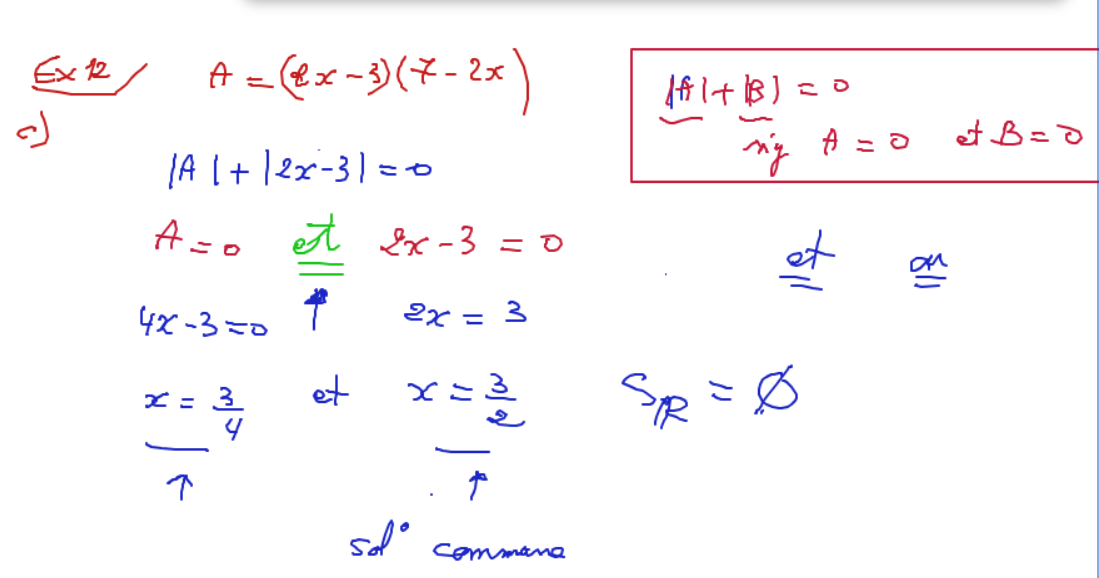 Ex 12 A = (2x - 3)(7 - 2x)
c)
|A| + |2x - 3| = 0
A = 0 et 2x - 3 = 0
4x - 3 = 0 ↑ 2x = 3
x = 3/4 et x = 3/2
↑ ↑
sol° commune
|A| + |B| = 0
sig A = 0 et B = 0
et ou
S_ℝ = ∅